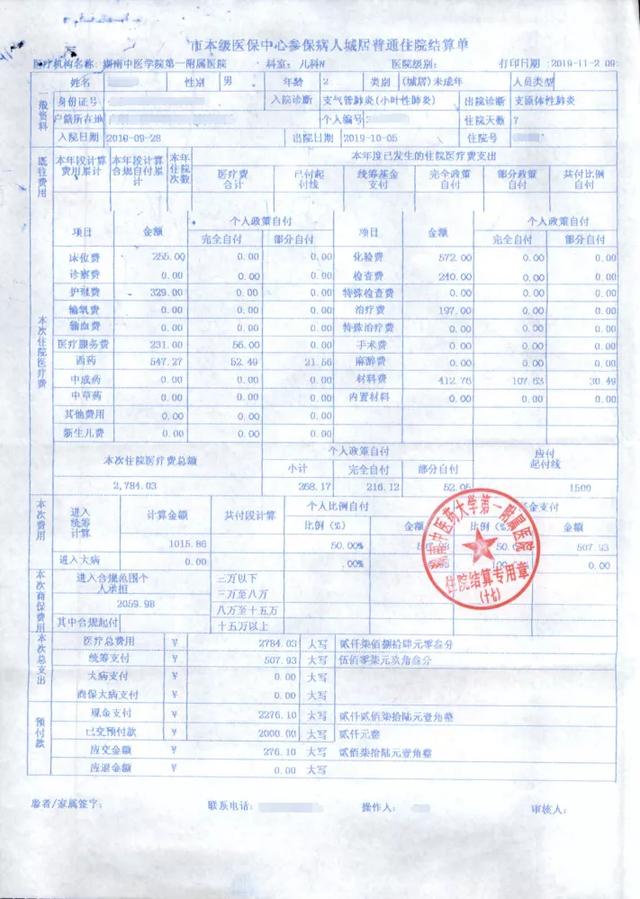 市本级医保中心参保病人城居普通住院结算单
医疗机构名称: 湖南中医学院第一附属医院 科室: 儿科N 医院级别: 打印日期: 2019-11-2 09
一般资料
姓名 性别 男 年龄 2 类别 (城居)未成年 人员类型
身份证号 入院诊断 支气管肺炎(小叶性肺炎) 出院诊断 支原体性肺炎
户籍所在地 个人编号 住院天数 7
入院日期 2019-09-28 出院日期 2019-10-05 住院号
既往费用
本年段计算费用累计 本年段计算合规自付累计 本年住院次数 本年度已发生的住院医疗费支出
医疗费合计 已付起付线 统筹基金支付 完全政策自付 部分政策自付 共付比例自付
本次住院医疗费
项目 金额 个人政策自付 项目 金额 个人政策自付
完全自付 部分自付 完全自付 部分自付
床位费 255.00 0.00 0.00 化验费 572.00 0.00 0.00
诊察费 0.00 0.00 0.00 检查费 240.00 0.00 0.00
护理费 329.00 0.00 0.00 特殊检查费 0.00 0.00 0.00
输氧费 0.00 0.00 0.00 治疗费 197.00 0.00 0.00
输血费 0.00 0.00 0.00 特殊治疗费 0.00 0.00 0.00
医疗服务费 231.00 56.00 0.00 手术费 0.00 0.00 0.00
西药 547.27 52.49 21.56 麻醉费 0.00 0.00 0.00
中成药 0.00 0.00 0.00 材料费 412.76 107.63 30.49
中草药 0.00 0.00 0.00 内置材料 0.00 0.00 0.00
其他费用 0.00 0.00 0.00
新生儿费 0.00 0.00 0.00
本次住院医疗费总额 个人政策自付 应付起付线
小计 完全自付 部分自付
2,784.03 268.17 216.12 52.05 1500
本次费用
进入统筹计算 计算金额 共付段计算 个人比例自付 金支付
比例(%) 金额 比例(%) 金额
1015.86 50.00% 50.0 507.93
进入大病 0.00 .00% 0.00
湖南中医药大学第一附属医院
住院结算专用章
(十七)
本次商保费用
进入合规范围个人承担 二万以下
2059.98 三万至八万
八万至十五万
其中合规起付 十五万以上
本次总支出
医疗总费用 ¥ 2784.03 大写 贰仟柒佰捌拾肆元零叁分
统筹支付 ¥ 507.93 大写 伍佰零柒元玖角叁分
大病支付 ¥ 0.00 大写
商保大病支付 ¥ 0.00 大写
预付款
现金支付 ¥ 2276.10 大写 贰仟贰佰柒拾陆元壹角整
已交预付款 ¥ 2000.00 大写 贰仟元整
应交金额 ¥ 276.10 大写 贰佰柒拾陆元壹角整
应退金额 ¥ 0.00 大写
患者/家属签字: 联系电话: 操作人: 审核人: